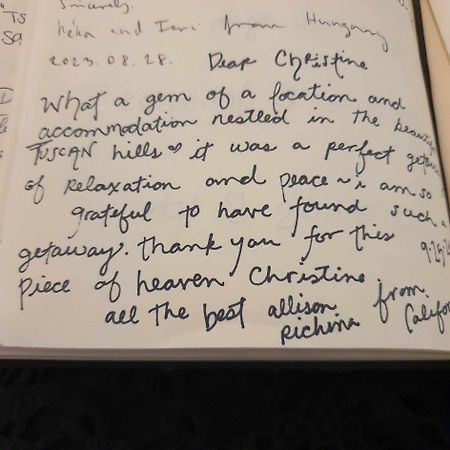 Sincerely,
Réka and Imri from Hungary
2023.08.28.
Dear Christine
What a gem of a location and
accommodation nestled in the beautiful
TUSCAN hills ♡ it was a perfect
of relaxation and peace ~ i am so
grateful to have found such a
getaway. thank you for this
piece of heaven Christine
all the best allison from
Richina